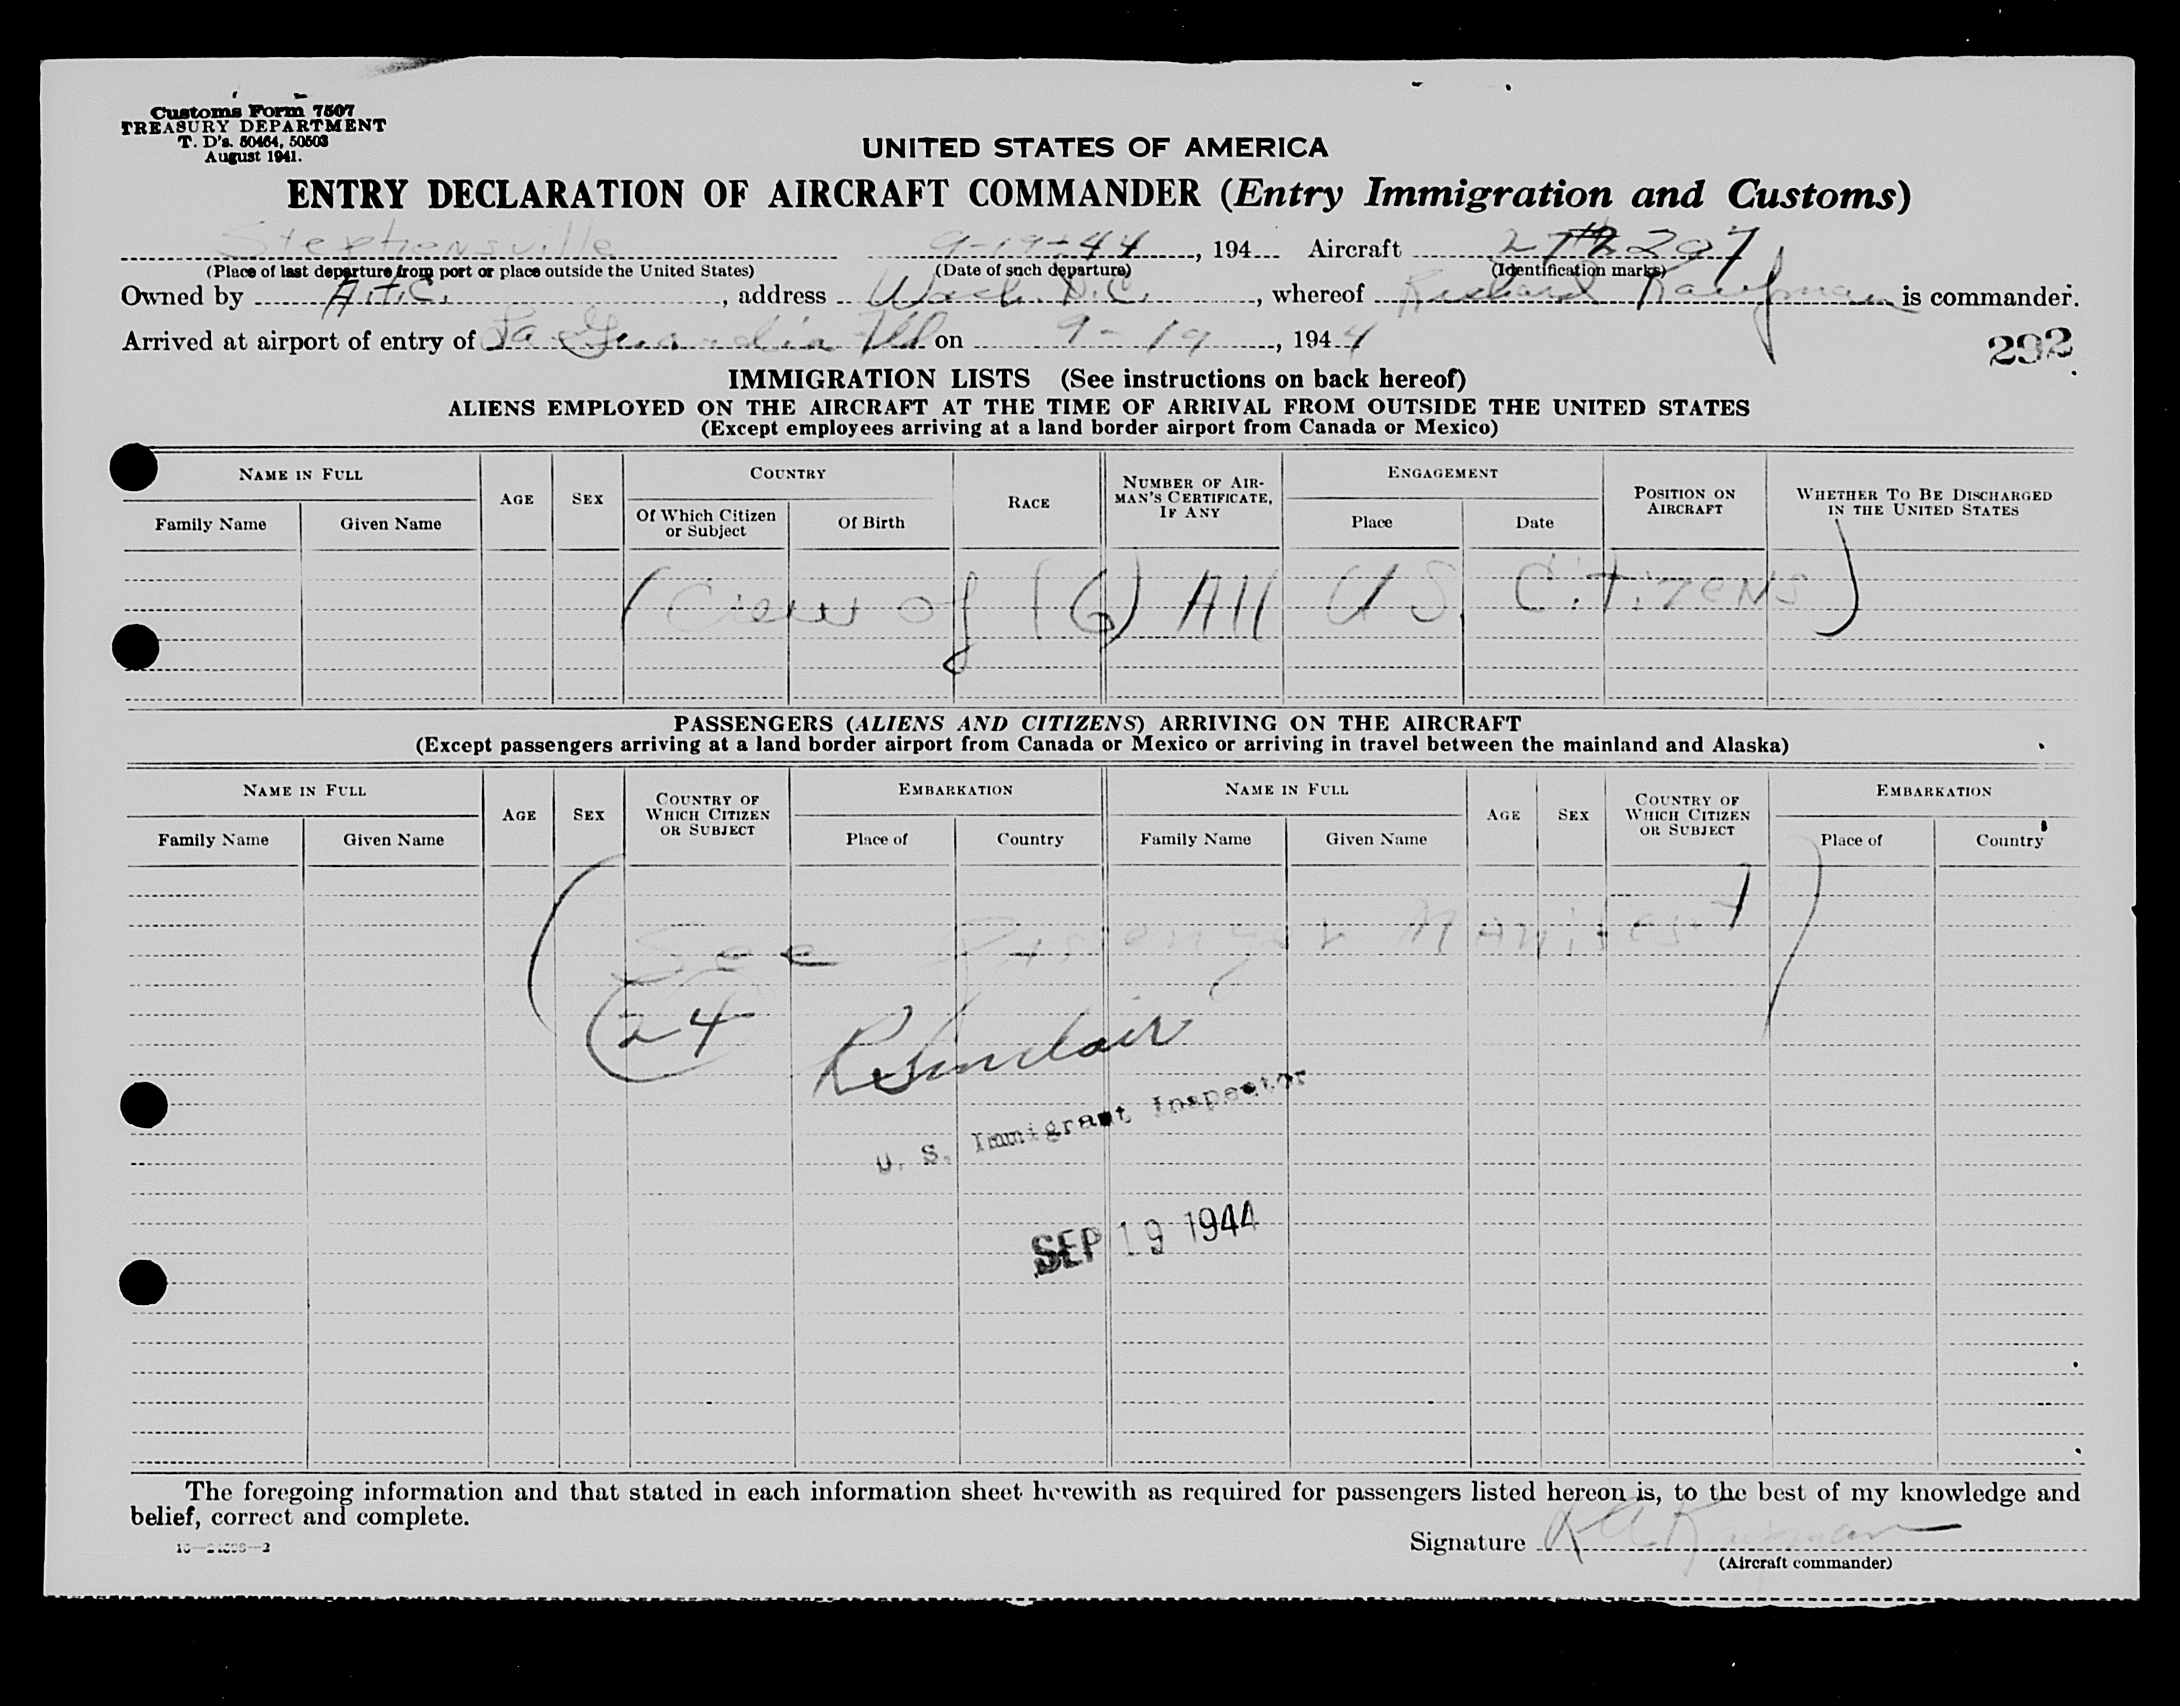 Customs Form 7507
TREASURY DEPARTMENT
T. D's. 50464, 50503
August 1941.
UNITED STATES OF AMERICA
ENTRY DECLARATION OF AIRCRAFT COMMANDER (Entry Immigration and Customs)
Stephensville 9-19-44, 194 Aircraft
(Place of last departure from port or place outside the United States) (Date of such departure) (Identification marks)
Owned by A.T.C., address Wash. D.C., whereof Richard Kaufman is commander.
Arrived at airport of entry of La Guardia Fld on 9-19, 1944
292
IMMIGRATION LISTS (See instructions on back hereof)
ALIENS EMPLOYED ON THE AIRCRAFT AT THE TIME OF ARRIVAL FROM OUTSIDE THE UNITED STATES
(Except employees arriving at a land border airport from Canada or Mexico)
NAME IN FULL AGE SEX COUNTRY RACE NUMBER OF AIRMAN'S CERTIFICATE, IF ANY ENGAGEMENT POSITION ON AIRCRAFT WHETHER TO BE DISCHARGED IN THE UNITED STATES
Family Name Given Name Of Which Citizen or Subject Of Birth Place Date
(Crew of (6) All U.S. Citizens)
PASSENGERS (ALIENS AND CITIZENS) ARRIVING ON THE AIRCRAFT
(Except passengers arriving at a land border airport from Canada or Mexico or arriving in travel between the mainland and Alaska)
NAME IN FULL AGE SEX COUNTRY OF WHICH CITIZEN OR SUBJECT EMBARKATION NAME IN FULL AGE SEX COUNTRY OF WHICH CITIZEN OR SUBJECT EMBARKATION
Family Name Given Name Place of Country Family Name Given Name Place of Country
(See Passenger Manifest)
24
R Sinclair
U. S. Immigrant Inspector
SEP 19 1944
The foregoing information and that stated in each information sheet herewith as required for passengers listed hereon is, to the best of my knowledge and
belief, correct and complete.
Signature R A Kaufman
(Aircraft commander)